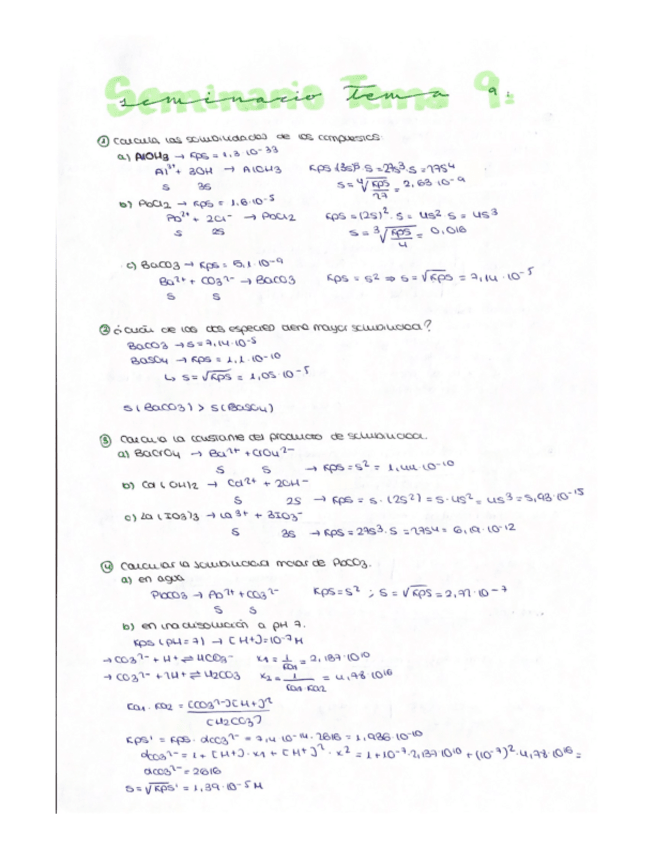 Seminario Tema 9:
seminario Tema 9:
① Calcula las solubilidades de los compuestos
a) AlOH3 → Kps = 1,3·10-33
Al3+ + 3OH → AlOH3 Kps (3s)3·s = 27s3·s = 27s4
s 3s s = 4√Kps/27 = 2,63·10-9
b) PbCl2 → Kps = 1,6·10-5
Pb2+ + 2Cl- → PbCl2 Kps = (2s)2·s = 4s2·s = 4s3
s 2s s = 3√Kps/4 = 0,016
c) BaCO3 → Kps = 5,1·10-9
Ba2+ + CO32- → BaCO3 Kps = s2 ⇒ s = √Kps = 7,14·10-5
s s
② ¿Cuál de las dos especies tiene mayor solubilidad?
BaCO3 → s = 7,14·10-5
BaSO4 → Kps = 1,1·10-10
↳ s = √Kps = 1,05·10-5
s(BaCO3) > s(BaSO4)
③ Calcula la constante del producto de solubilidad.
a) BaCrO4 → Ba2+ + CrO42-
s s → Kps = s2 = 1,44·10-10
b) Cd(OH)2 → Cd2+ + 2OH-
s 2s → Kps = s·(2s2) = s·4s2 = 4s3 = 5,93·10-15
c) La(IO3)3 → La3+ + 3IO3-
s 3s → Kps = 27s3·s = 27s4 = 6,19·10-12
④ Calcular la solubilidad molar de PbCO3.
a) en agua
PbCO3 → Pb2+ + CO32- Kps = s2 ; s = √Kps = 2,72·10-7
s s
b) en una disolución a pH 7.
Kps (pH=7) → [H+] = 10-7 M
→ CO32- + H+ ⇌ HCO3- K1 = 1/Ka2 = 2,137·1010
→ CO32- + 2H+ ⇌ H2CO3 K2 = 1/Ka1·Ka2 = 4,78·1016
Ka1·Ka2 = [CO32-][H+]2/[H2CO3]
Kps' = Kps·αCO32- = 7,4·10-14·2616 = 1,936·10-10
αCO32- = 1 + [H+]·K1 + [H+]2·K2 = 1 + 10-7·2,137·1010 + (10-7)2·4,78·1016 =
αCO32- = 2616
s = √Kps' = 1,39·10-5 M